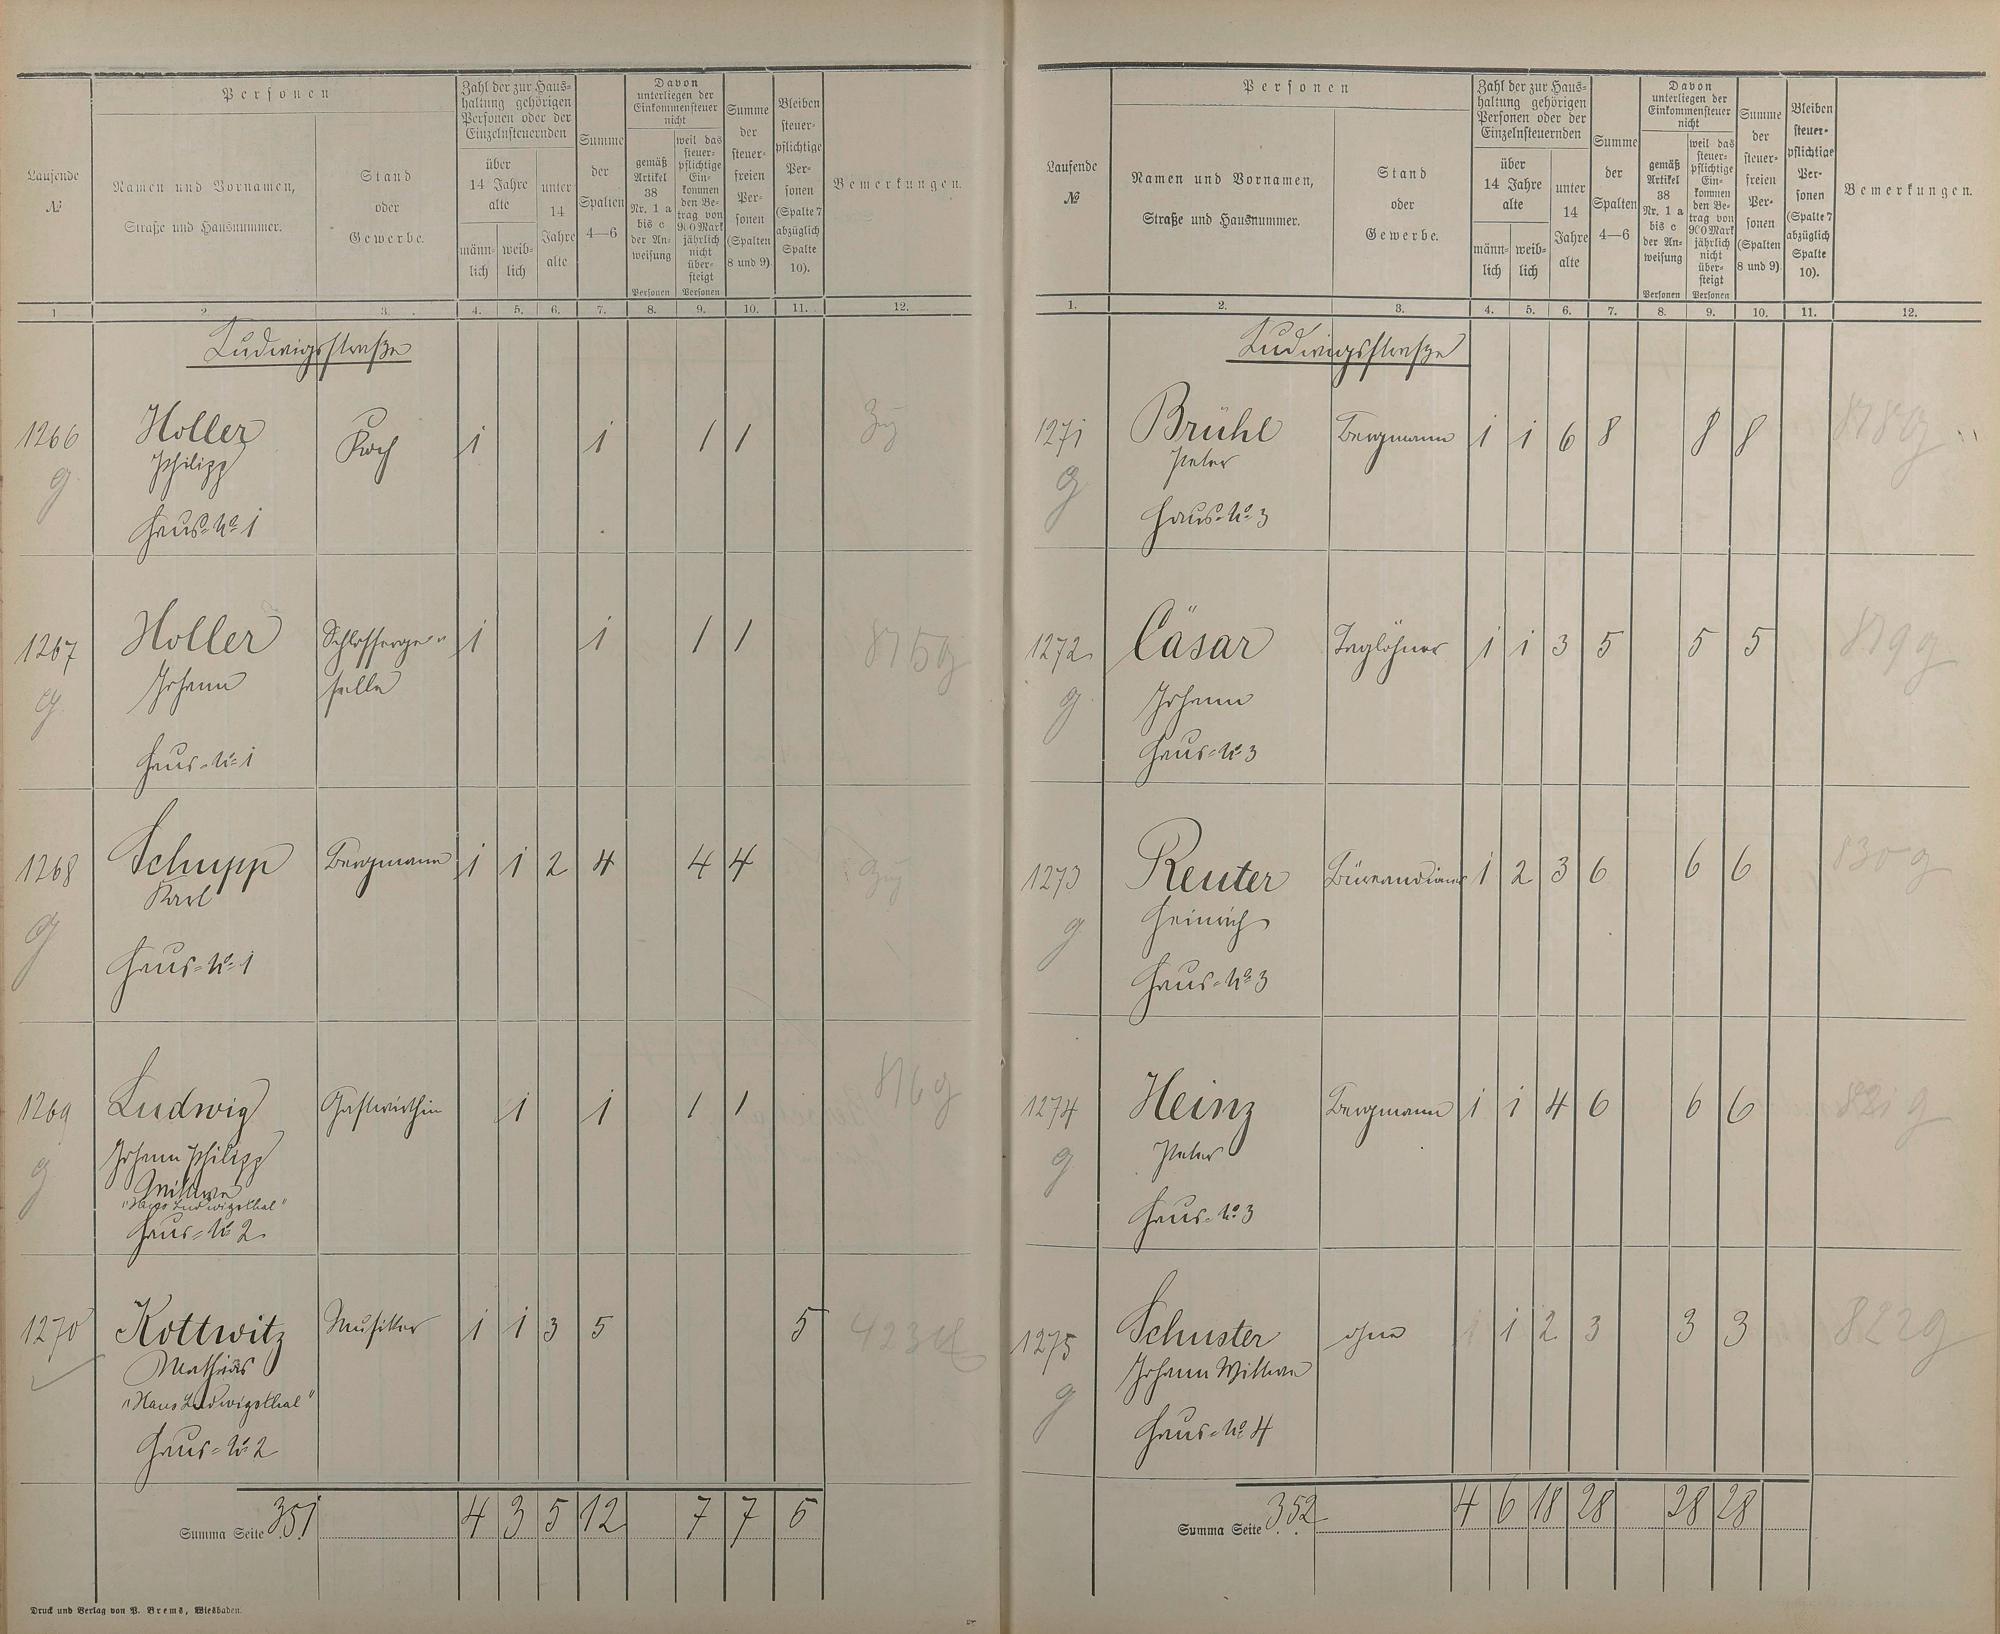 Laufende
№
Personen
Namen und Vornamen,
Straße und Hausnummer.
Stand
oder
Gewerbe.
Zahl der zur Haus-
haltung gehörigen
Personen oder der
Einzelnsteuernden
über
14 Jahre
alte
männ-
lich
weib-
lich
unter
14
Jahre
alte
Summe
der
Spalten
4—6
Davon
unterliegen der
Einkommensteuer
nicht
gemäß
Artikel
38
Nr. 1 a
bis c
der An-
weisung
Personen
weil das
steuer-
pflichtige
Ein-
kommen
den Be-
trag von
900 Mark
jährlich
nicht
über-
steigt
Personen
Summe
der
steuer-
freien
Per-
sonen
(Spalten
8 und 9)
Bleiben
steuer-
pflichtige
Per-
sonen
(Spalte 7
abzüglich
Spalte
10).
Bemerkungen.
1 2 3. 4. 5. 6. 7. 8. 9. 10. 11. 12.
Ludwigsstraße
1266 Holler Koch 1 1 1 1 Zug
g Philipp
Haus-No 1
1267 Holler Schlosserge- 1 1 1 1 815 g
g Johann selle
Haus-No 1
1268 Schupp Bergmann 1 1 2 4 4 4 Zug
g Karl
Haus-No 1
1269 Ludwig Gastwirthin 1 1 1 1 816 g
g Johann Philipp
Wittwe
"Haus Ludwigsthal"
Haus-No 2
1270 Kottwitz Musiker 1 1 3 5 5 423
Mathias
"Haus Ludwigsthal"
Haus-No 2
Summa Seite 351 4 3 5 12 7 7 5
Druck und Verlag von P. Brems, Wiesbaden.
Laufende
№
Personen
Namen und Vornamen,
Straße und Hausnummer.
Stand
oder
Gewerbe.
Zahl der zur Haus-
haltung gehörigen
Personen oder der
Einzelnsteuernden
über
14 Jahre
alte
männ-
lich
weib-
lich
unter
14
Jahre
alte
Summe
der
Spalten
4—6
Davon
unterliegen der
Einkommensteuer
nicht
gemäß
Artikel
38
Nr. 1 a
bis c
der An-
weisung
Personen
weil das
steuer-
pflichtige
Ein-
kommen
den Be-
trag von
900 Mark
jährlich
nicht
über-
steigt
Personen
Summe
der
steuer-
freien
Per-
sonen
(Spalten
8 und 9)
Bleiben
steuer-
pflichtige
Per-
sonen
(Spalte 7
abzüglich
Spalte
10).
Bemerkungen.
1. 2. 3. 4. 5. 6. 7. 8. 9. 10. 11. 12.
Ludwigsstraße
1271 Brühl Bergmann 1 1 6 8 8 8 818 g
g Peter
Haus-No 3
1272 Cäsar Taglöhner 1 1 3 5 5 5 819 g
g Johann
Haus-No 3
1273 Reuter Büreaudiener 1 2 3 6 6 6 830 g
g Heinrich
Haus-No 3
1274 Heinz Bergmann 1 1 4 6 6 6 821 g
g Peter
Haus-No 3
1275 Schuster ohne 1 2 3 3 3 822 g
g Johann Wittwe
Haus-No 4
Summa Seite 352 4 6 18 28 28 28